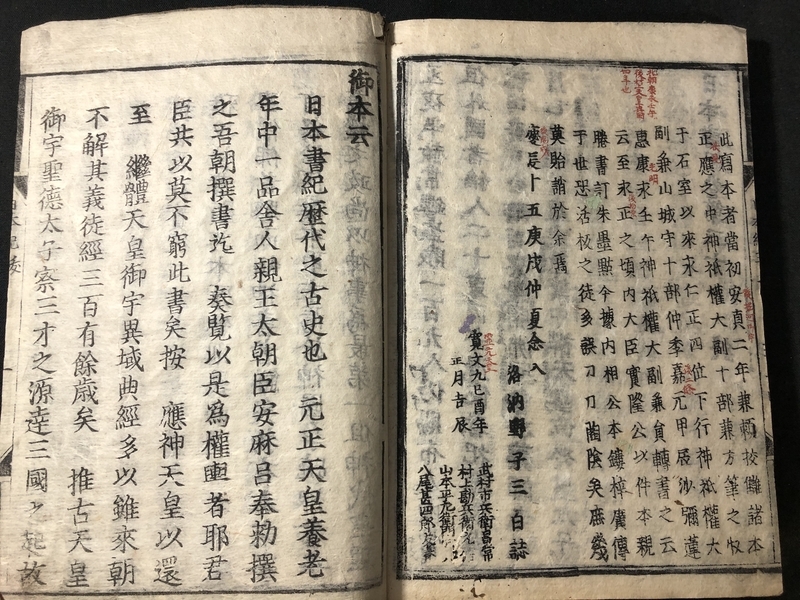 此寫本者當初安貞二年兼頼校讎諸本
正應之中神祇權大副十部兼方筆之收
于石室以來永仁正四位下行神祇權大
副兼山城守十部仲季嘉元甲辰沙彌蓮
惠康永壬午神祇權大副兼員轉書之云
云至永正之頃内大臣實隆公以件本親
謄書訂朱墨點今據内相公本鏤梓廣傳
于世恐活板之徒多誤刀刀陶陰矣庶幾
莫貽誚於余焉
慶長十五庚戌仲夏念八 洛汭野子三白誌
寛文九己酉年
正月吉辰
武村市兵衞昌常
村上勘兵衞
山本平左衞門
八尾甚四郎友春
御本云
日本書紀歴代之古史也 元正天皇養老
年中一品舎人親王太朝臣安麻呂奉勅撰
之吾朝撰書訖 奏覧以是為權輿者耶君
臣共以莫不窮此書矣按 應神天皇以還
至 繼體天皇御宇異域典經多以雖來朝
不解其義徒經三百有餘歳矣 推古天皇
御宇聖德太子察三才之源達三國之起故